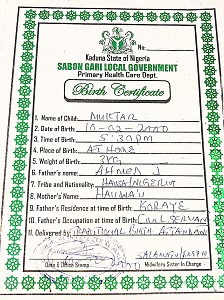 Kaduna State of Nigeria No:
SABON GARI LOCAL GOVERNMENT
Primary Health Care Dept.
Birth Certificate
1. Name of Child: MUKTAR
2. Date of Birth: 10-02-2000
3. Time of Birth 5:30PM
4. Place of Birth: AT HOME
5. Weight of Birth: 3KG
6. Father's name: AHMED J
7. Tribe and Nationality: HAUSA/NIGERIA
8. Mother's Name: HAUWA'U
9. Father's Residence at Birth: KORAYE
10. Father's Occupation at time of Birth: CIVIL SERVANT
11. Delivered by: TRADITIONAL BIRTH ATTENDANT
Date & Office Stamp Midwifery Sister In Charge